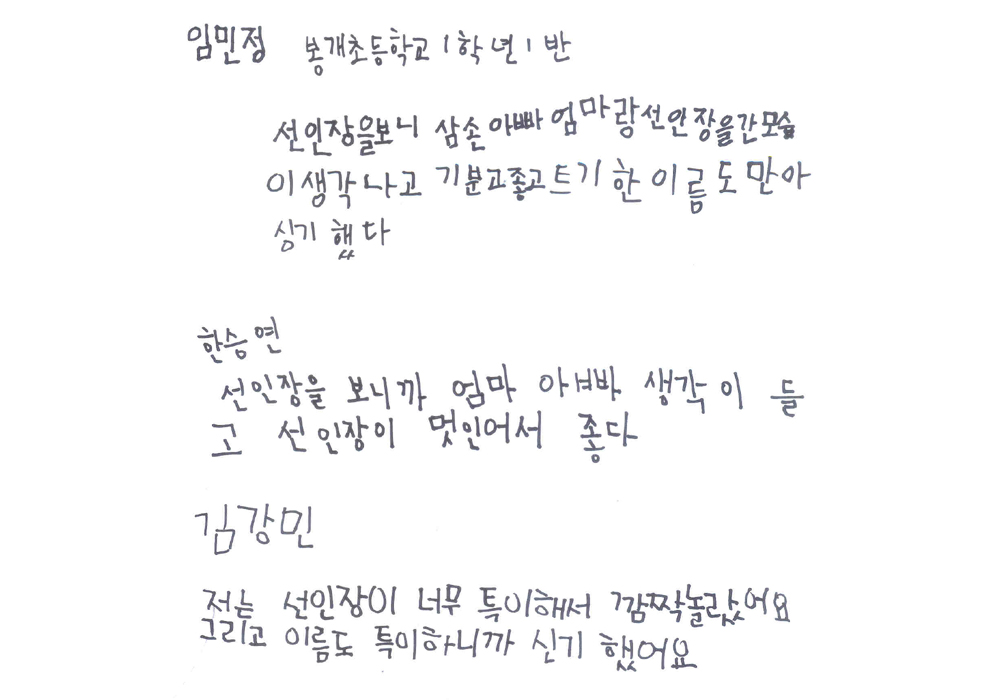 임민정 봉개초등학교 1학년 1반
선인장을보니 삼촌아빠엄마랑선인장을간모습
이생각나고 기분고좋고트기한이름도만아
싱기했다
한승연
선인장을 보니까 엄마 아빠 생각이 들
고 선인장이 멋인어서 좋다
김강민
저는 선인장이 너무 특이해서 깜짝놀랐어요
그리고 이름도 특이하니까 신기했어요